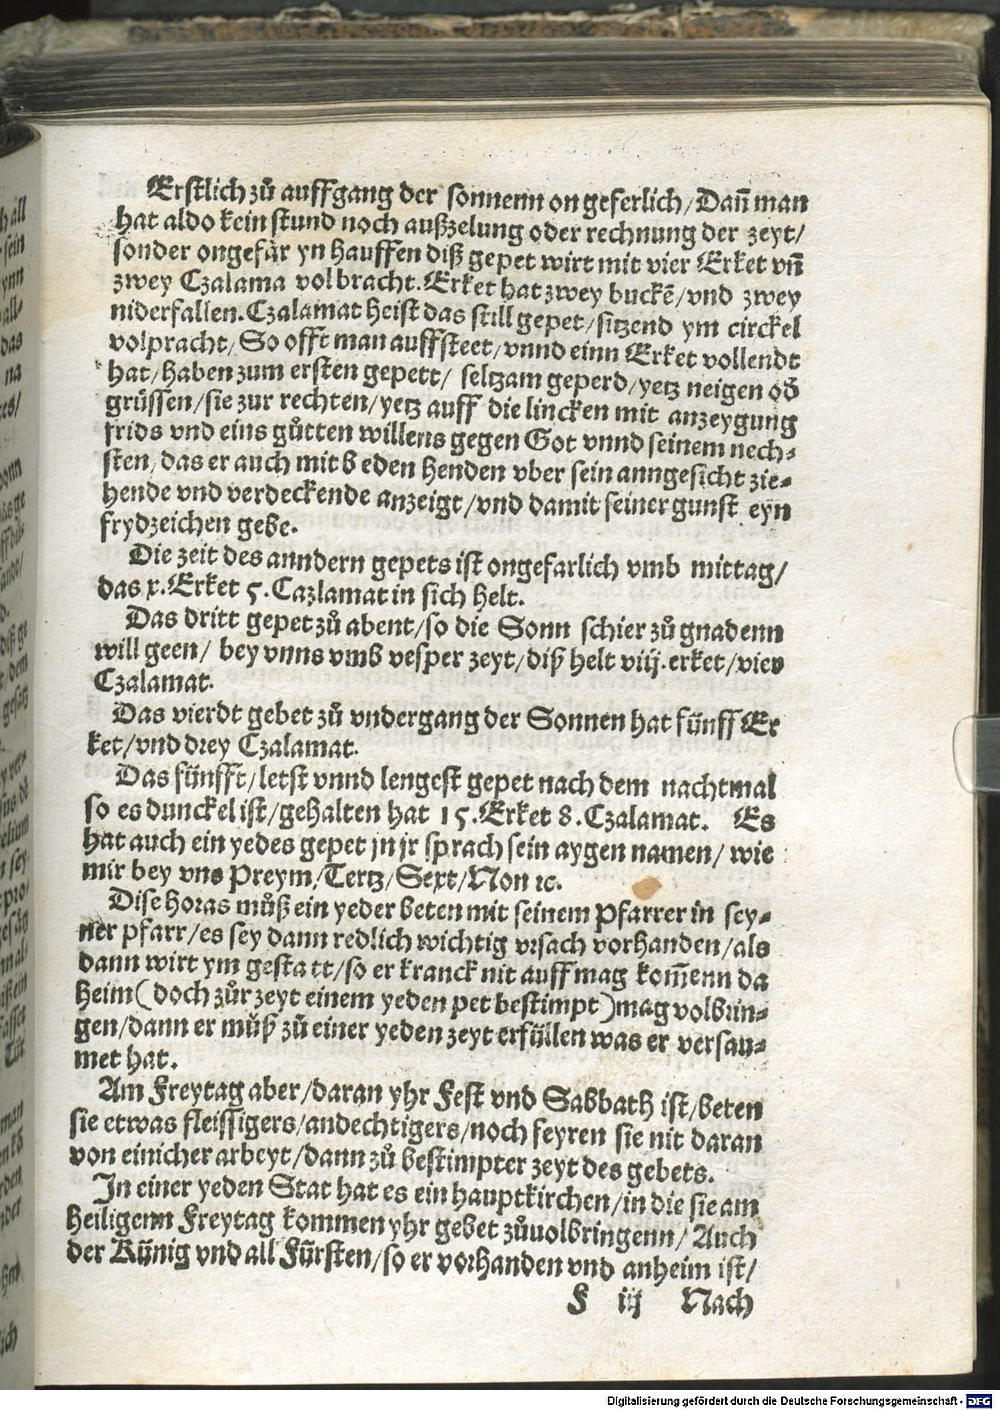 Erstlich zů auffgang der sonnenn on geferlich/ Dañ man
hat aldo kein stund noch außzelung oder rechnung der zeyt/
sonder ongefär yn hauffen diß gepet wirt mit vier Erket vñ
zwey Czalama volbracht. Erket hat zwey buckē/vnd zwey
niderfallen. Czalamat heist das still gepet/sitzend ym circkel
volpracht/ So offt man auffsteet/vnnd einn Erket vollendt
hat/haben zum ersten gepett/ seltzam geperd/yetz neigen od̄
grüssen/sie zur rechten/yetz auff die lincken mit anzeygung
frids vnd eins gůtten willens gegen Got vnnd seinem nech⸗
sten/das er auch mit beden henden vber sein anngesicht zie⸗
hende vnd verdeckende anzeigt/vnd damit seiner gunst eyn
frydzeichen gebe.
Die zeit des anndern gepets ist ongefarlich vmb mittag/
das x. Erket 5. Cazlamat in sich helt.
Das dritt gepet zů abent/so die Sonn schier zů gnadenn
will geen/ bey vnns vmb vesper zeyt/diß helt viij. erket/vier
Czalamat.
Das vierdt gebet zů vndergang der Sonnen hat fünff Er
ket/vnd drey Czalamat.
Das fünfft/letst vnnd lengest gepet nach dem nachtmal
so es dunckel ist/gehalten hat 15. Erket 8. Czalamat. Es
hat auch ein yedes gepet jn jr sprach sein aygen namen/ wie
mir bey vns Preym/Tertz/Sext/Non ꝛc.
Dise horas můß ein yeder beten mit seinem Pfarrer in sey⸗
ner pfarr/es sey dann redlich wichtig vrsach vorhanden/als
dann wirt ym gestatt/so er kranck nit auff mag kom̄enn da
heim(doch zůr zeyt einem yeden pet bestimpt)mag volbrin⸗
gen/dann er můß zů einer yeden zeyt erfüllen was er versau⸗
met hat.
Am Freytag aber/daran yhr Fest vnd Sabbath ist/beten
sie etwas fleissigers/andechtigers/noch feyren sie nit daran
von einicher arbeyt/dann zů bestimpter zeyt des gebets.
In einer yeden Stat hat es ein hauptkirchen/in die sie am
heiligenn Freytag kommen yhr gebet zůuolbringenn/ Auch
der Künig vnd all Fürsten/so er vorhanden vnd anheim ist/
F iij Nach
Digitalisierung gefördert durch die Deutsche Forschungsgemeinschaft - DFG